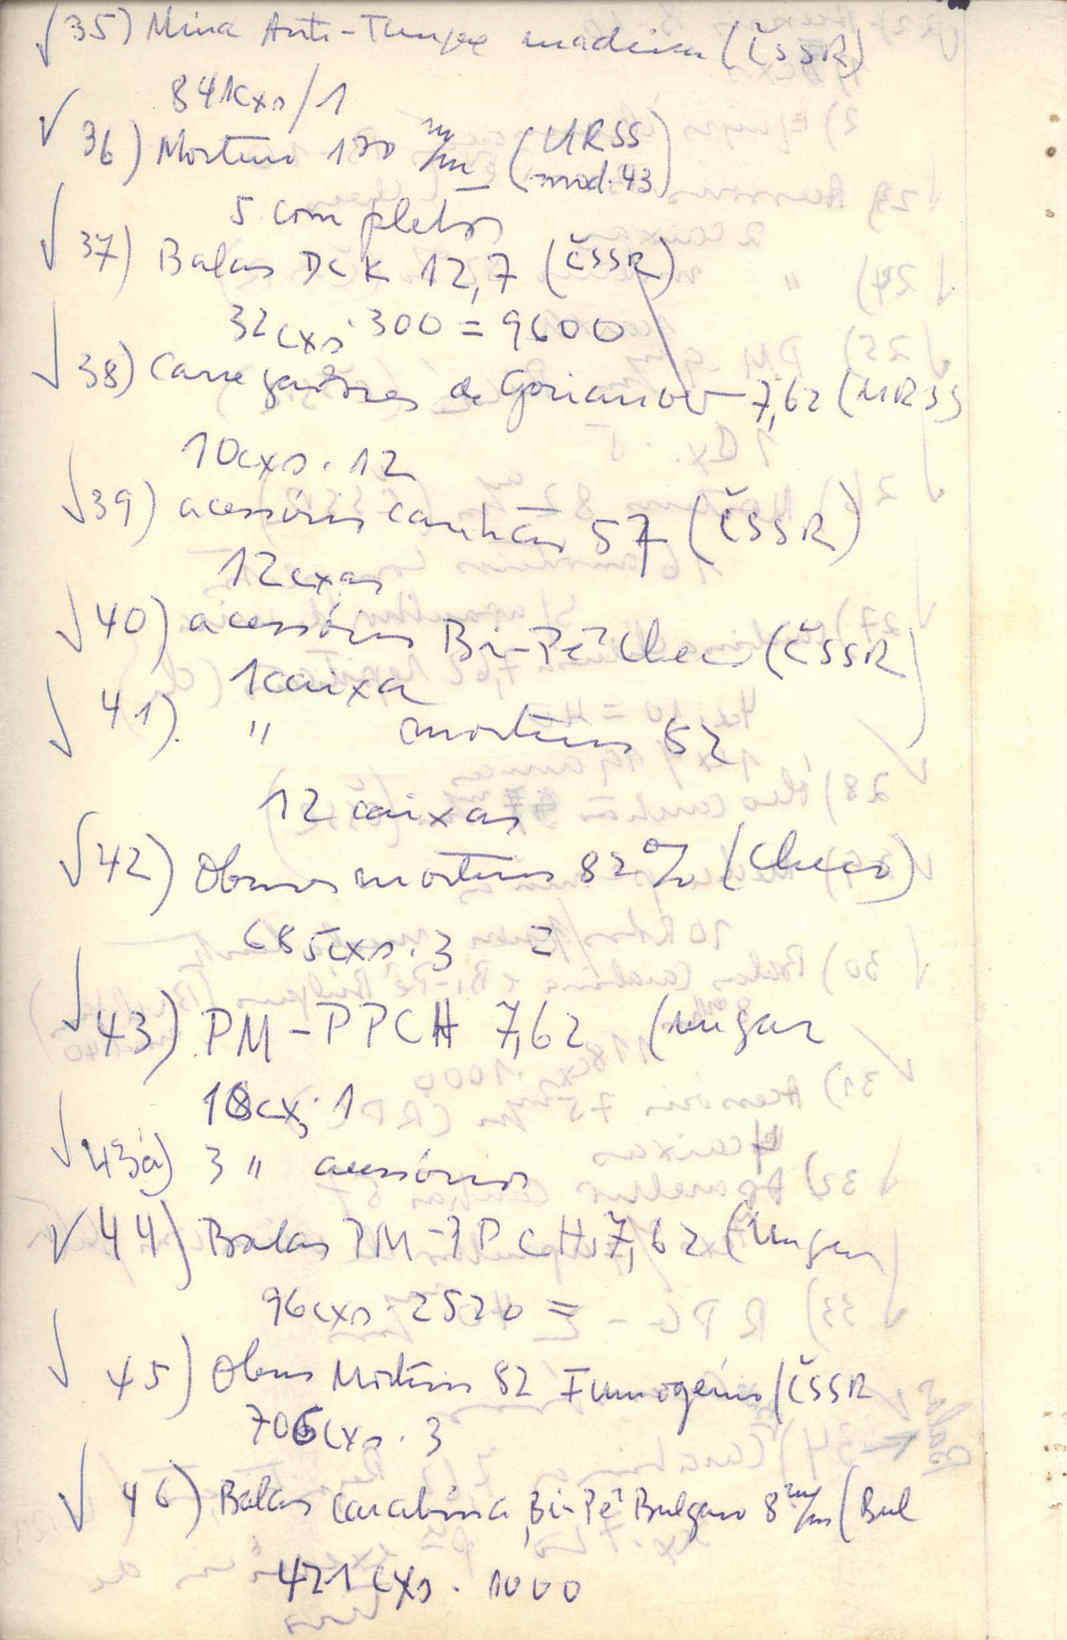 √35) Mina Anti-Tanque madeira (ČSSR)
84 1cxs/1
√ 36) Morteiro 120 m/m (URSS
mod. 43)
5 completos
√ 37) Balas DCK 12,7 (ČSSR)
32 cxs. 300 = 9600
√ 38) Carregadores de Gorianov 7,62 (URSS
10 cxs. 12
√39) acessórios canhão 57 (ČSSR)
12 cxas
√40) acessórios Bi-Pé Checo (ČSSR)
1 caixa
√ 41) " morteiro 82
12 caixas
√42) Obuses morteiros 82 m/m (Checo)
685 cxs. 3 =
√43) PM-PPCH 7,62 (Ungar
18 cx. 1
√43a) 3 " acessórios
√44) Balas PM-PPCH 7,62 (Ungar
96 cxs. 2520 =
√ 45) Obus Morteiros 82 Fumogénio (ČSSR
706 cxs. 3
√ 46) Balas Carabina, Bi-Pé Bulgaro 8 m/m (Bul
421 cxs. 1000